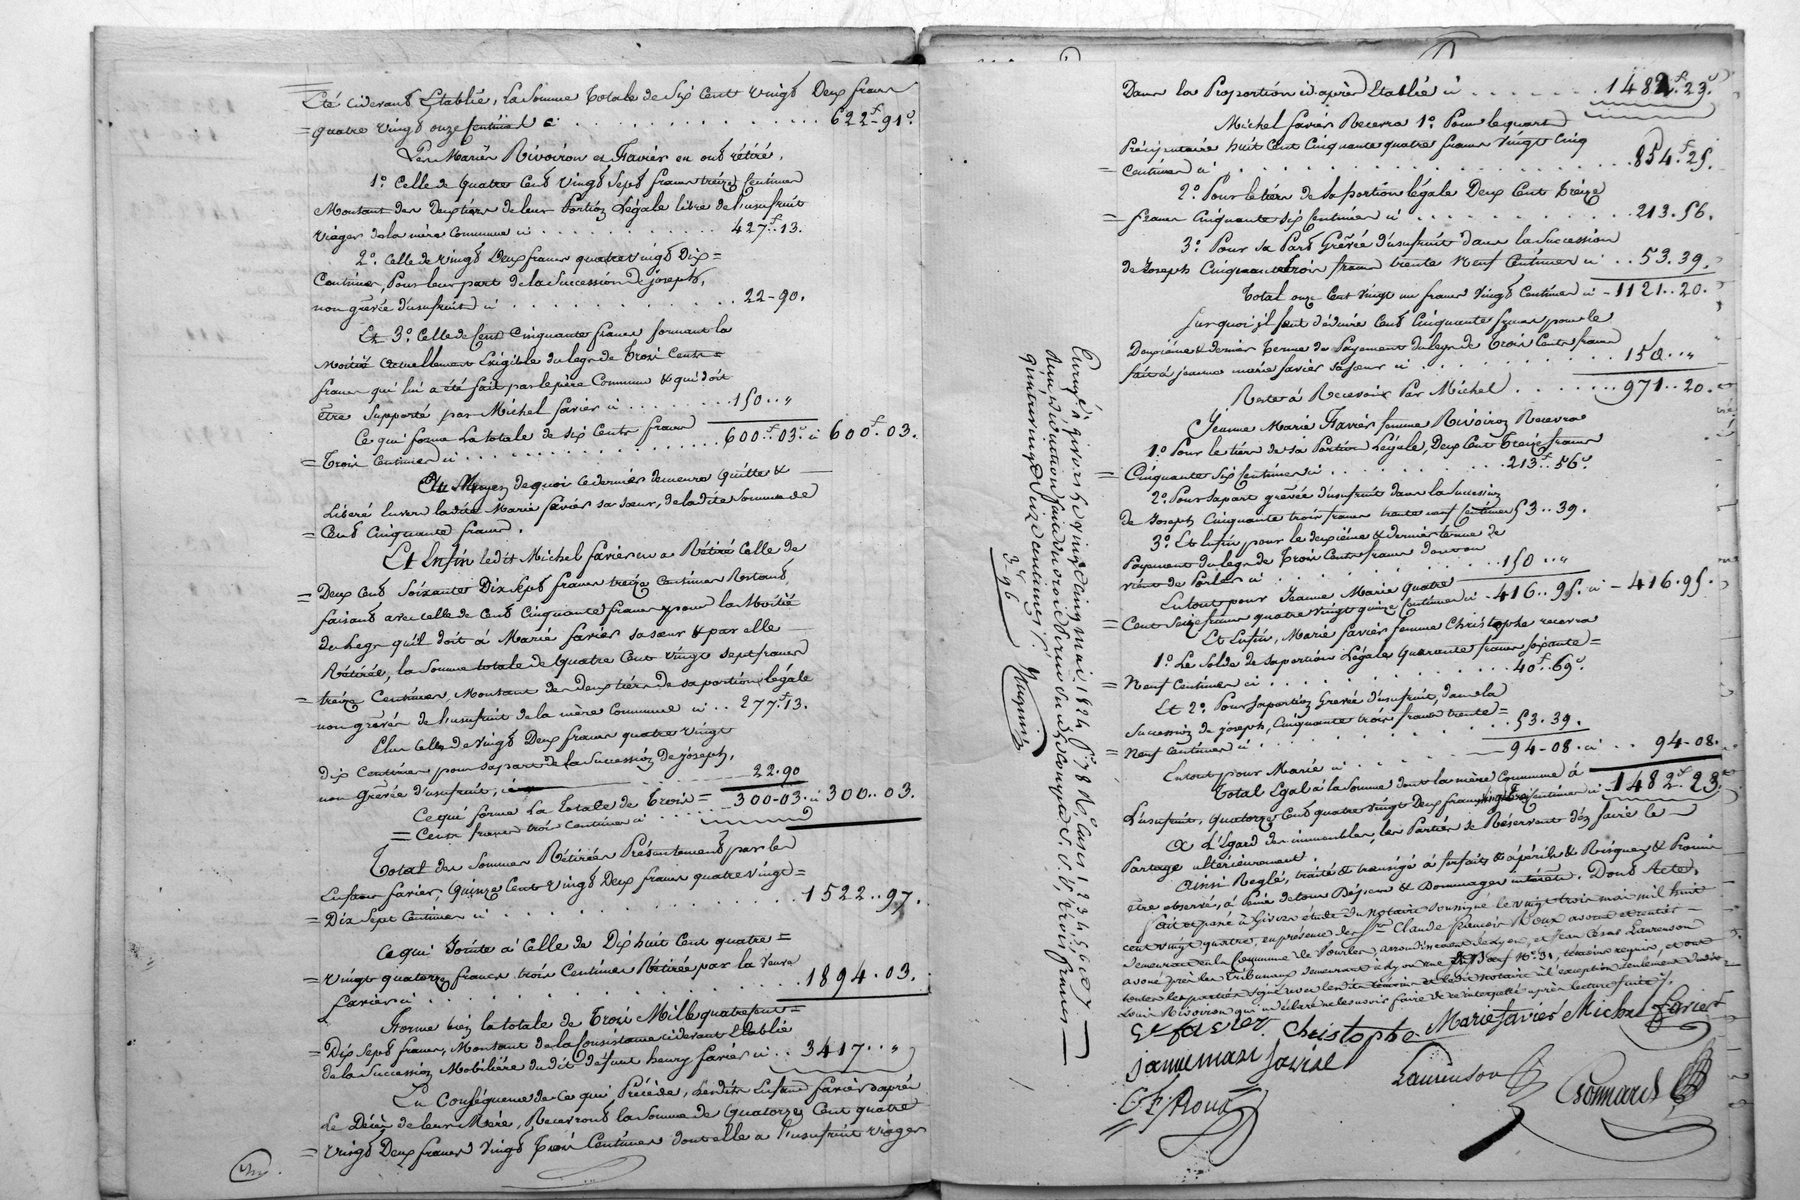 Eté cidevant Etablie, la Somme totale de Six Cent Vingt Deux francs
= quatre Vingt onze Centimes ci . . . . . . . . . . 622f-91c.
Les Mariés Rivoiron et Favier en ont rétiré,
1o. Celle de Quatre Cent Vingt Sept francs treize Centimes
Montant des Deux tiers de leur Portion Légale libre de l'usufruit
Viager de la mère Commune ci . . . . . . . . . . 427f.13.
2o. Celle de Vingt Deux francs quatre vingt Dix =
Centimes, Pour leur part de la Succession de joseph,
non grévée d'usufruit ci . . . . . . . . . . 22-90.
Et 3o. Celle de Cent Cinquante francs formant la
Moitié actuellement Exigible du legs de Trois Cents =
francs qui lui a été fait par le père Commun & qui doit
être Supporté par Michel favier ci . . . . . . 150..„
Ce qui forme La totale de Six Cents francs
= Trois Centimes ci . . . . . . . . . . 600f..03c. ci 600f.03.
Au Moyen de quoi ce dernier demeure Quitte &
Libéré Envers ladite Marie favier sa sœur, de ladite Somme de
= Cent Cinquante francs.
Et Enfin ledit Michel favier en a Rétiré Celle de
= Deux Cent Soixante Dix Sept francs treize Centimes Restant,
faisant avec celle de Cent Cinquante francs pour la Moitié
du Legs qu'il doit à Marie favier sa sœur & par elle
Rétirée, la Somme totale de Quatre Cent Vingt sept francs
= treize Centimes Montant des deux tiers de sa portion légale
non grévée de l'usufruit de la mère Commune ci . . 277f.13.
Plus celle de Vingt Deux francs quatre vingt
dix Centimes pour sa part de la Succession de joseph,
non grévée d'usufruit, ci . . . . 22.90
Ce qui forme La totale de Trois = 300-03. ci 300..03.
= Cents francs trois Centimes ci . . . .
Total des Sommes Rétirées Présentement par les
Enfans favier, Quinze Cent Vingt Deux francs quatre vingt =
= Dix Sept Centimes ci . . . . . . . . . . 1522..97.
Ce qui Jointe à Celle de Dix huit Cent quatre =
= Vingt quatorze francs trois Centimes Rétirée par la Veuve
favier ci . . . . . . . . . . 1894.03.
Forme bien la totale de Trois Mille quatre Cent =
= Dix Sept francs, Montant de la Consistance cidevant Etablie
de la Succession Mobilière du dit défunt henry favier ci . . 3417..„
En Conséquence de Ce qui Précède, lesdits Enfans favier d'après
Le Décès de leur Mère, Recevront la Somme de Quatorze Cent quatre
= Vingt Deux francs Vingt Trois Centimes dont elle a l'usufruit viager
Dans la Proportion ci après Etablie ci . . . . . . . 1482f.23c.
Michel favier Recevra 1o. Pour le quart
Préciputaire huit Cent Cinquante quatre francs Vingt Cinq
= Centimes ci . . . . . . . . . . 854.f25.
2o. Pour le tiers de sa portion légale Deux Cent Treize
= francs Cinquante Six Centimes ci . . . . . . . . . . 213.56.
3o. Pour sa Part Grévée d'usufruit dans la Succession
de Joseph Cinquante Trois francs trente Neuf Centimes ci . . 53.39.
Total onze Cent Vingt un francs Vingt Centimes ci - 1121..20.
Sur quoi il faut déduire Cent Cinquante francs pour le
Deuxième & dernier terme du Payement du legs de Trois Cents francs
fait à jeanne marie favier sa sœur ci . . . . . 150..„
Reste à Recevoir Par Michel . . . . . . . 971..20.
Jeanne Marie Favier femme Rivoiron Recevra
1o. Pour le tiers de sa Portion Légale, Deux Cent Treize francs
= Cinquante Six Centimes ci . . . . . . . . . . 213f..56c.
2o. Pour sa part grévée d'usufruit dans la Succession
de Joseph Cinquante trois francs trente neuf Centimes 53..39.
3o. Et Enfin pour le deuxième & dernier terme de
Payement du legs de Trois Cents francs dont on
vient de Parler ci . . . . . . . . . . 150..„
En tout pour Jeanne Marie Quatre
= Cent Seize francs quatre Vingt quinze Centimes ci - 416..95. ci - 416.95.
Et Enfin, Marie favier femme Christophe recevra
1o. Le Solde de sa portion Légale Quarante francs soixante =
= Neuf Centimes ci . . . . . . . . . . 40f.69c.
Et 2o. Pour sa portion Grevée d'usufruit, dans la
Succession de joseph, Cinquante trois francs trente =
= Neuf Centimes ci . . . . . . . . . . 53.39.
En tout pour Marie ci . . . . . . 94-08. ci . . 94-08.
Total Egal à la Somme dont la mère Commune à
L'usufruit, Quatorze Cent quatre vingt Deux francs vingt Trois Centimes ci - 1482f.23c.
A L'Egard des immeubles, les Parties se Réservent d'en faire le
Partage ultérieurement.
Ainsi Reglé, traité & transigé à forfait & à périls & Risques & Promis
être observé, à Peine de tous Dépens & Dommages intérêts. Dont Acte,
fait et passé à Givors étude du Notaire soussigné le vingt trois mai mil huit
cent vingt quatre, en présence des Srs Claude François Roux avoué et rentier
demeurant en la Commune de , arrondissement de Lyon, et Jean Laurenson
avoué près les tribunaux demeurant à Lyon rue No. 31, témoins requis, et ont
toutes les parties signé avec lesdits témoins et ledit notaire à l'exception seulement dudit
Louis Rivoiron qui a déclaré ne le savoir faire de ce interpellé après lecture faite.
Ve favier. Christophe Marie favier Michel favier
janne marie favier
Laurenson
C F Roux
Enregé. à givors le vingt cinq mai 1824 fo. 78 Ro. Cases 1 2 3 4 5 6 et 7
trois francs
quatre vingt seize centimes
3-96